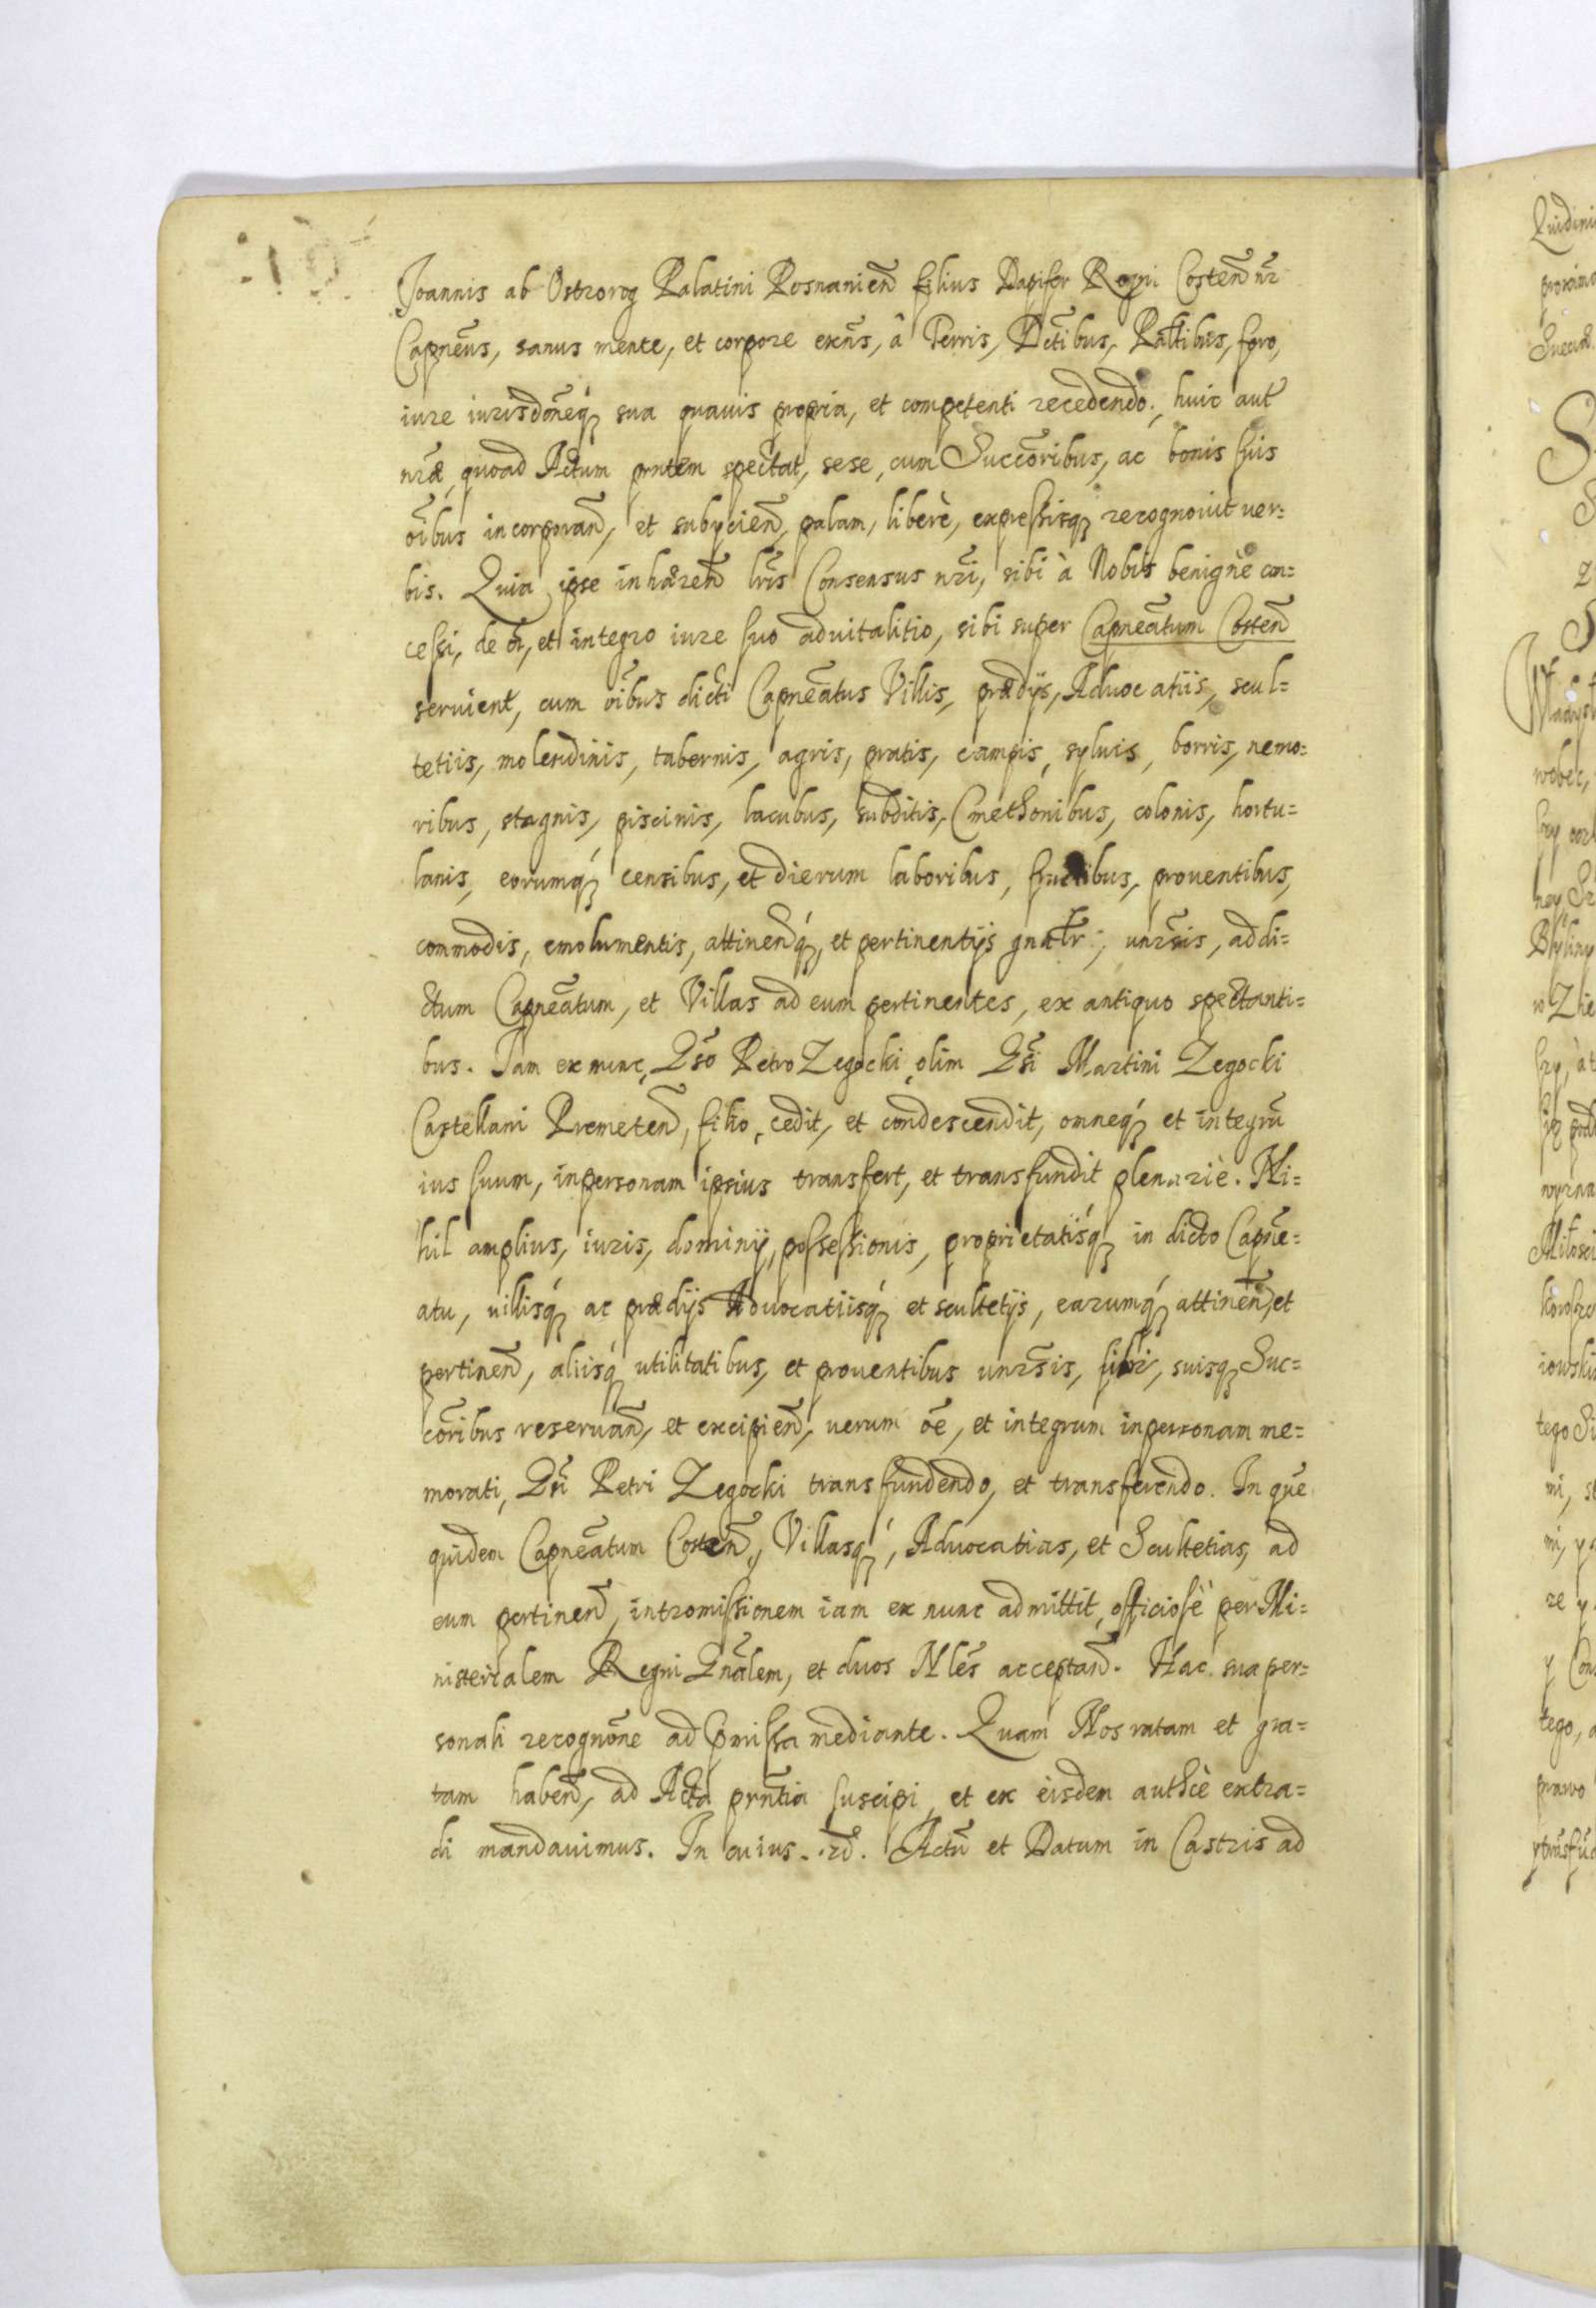 Joannis ab Ostrorog Palatini Posnanien̄ filius Dapifer Regni Costen̄ nr̄
Capneūs, sanus mente, et corpore exn̄s, â Terris, Dctībus, Paltībus, foro,
iure iurisdōneq́ꝫ sua quauis propria, et competenti recedendo, huic aut̄
nr̄æ, quoad Actum prn̄tem spectat, sese, cum Succōribus, ac bonis suis
oībus incorporan̄, et subycien̄, palam, liberè, expressisqꝫ recognouit uer=
bis. Quia ipse inhæren̄ lrīs Consensus nr̄i, sibi à Nobis benignè con=
cessi, de , et integro iure suo aduitalitio, sibi super Capneātum Costen̄
seruient, cum oībus dicti Capneātus Villis, prædijs, Aduocatiis, scul=
tetiis, molendinis, tabernis, agris, pratis, campis, syluis, borris, nemo=
ribus, stagnis, piscinis, lacubus, subditis, Cmethonibus, colonis, hortu=
lanis, eorumq́ꝫ censibus, et dierum laboribus, fructibus, prouentibus,
commodis, emolumentis, attinen̄q́ꝫ, et pertinentijs gnālr̄, unr̄sis, ad di=
ctum Capneātum, et Villas ad eum pertinentes, ex antiquo spectanti=
bus. Iam ex nunc, Gsō Petro Zegocki, olim Gsī Martini Zegocki
Castellani Premeten̄, filio, cedit, et condescendit, omneq́ꝫ et integrū
ius suum, in personam ipsius transfert, et transfundit plenariè. Ni=
hil amplius, iuris, dominij, possessionis, proprietatisq́ꝫ in dicto Capne=
atu, uillisq́ꝫ ac prædijs Aduocatiisq́ꝫ et scultetijs, earumq́ꝫ attinen̄, et
pertinen̄, aliisq́ꝫ utilitatibus, et prouentibus unr̄sis, sibi, suisqꝫ Suc=
cōribus reseruan̄, et excipien̄, uerum ōe, et integrum in personam me=
morati, Gsī Petri Zegocki transfundendo, et transferendo. In quē
quidem Capneātum Costen̄, Villasq́ꝫ, Aduocatias, et Scultetias, ad
eum pertinen̄, intromissionem iam ex nunc admittit, officiosè per Mi=
nisterialem Regni Gnālem, et duos Nlēs acceptan̄. Hac sua per=
sonali recognōne ad pmissa mediante. Quam Nos ratam et gra=
tam haben̄, ad Acta prn̄tia suscipi, et ex eisdem authcè extra=
di mandauimus. In cuius . rei. Actū et Datum in Castris ad